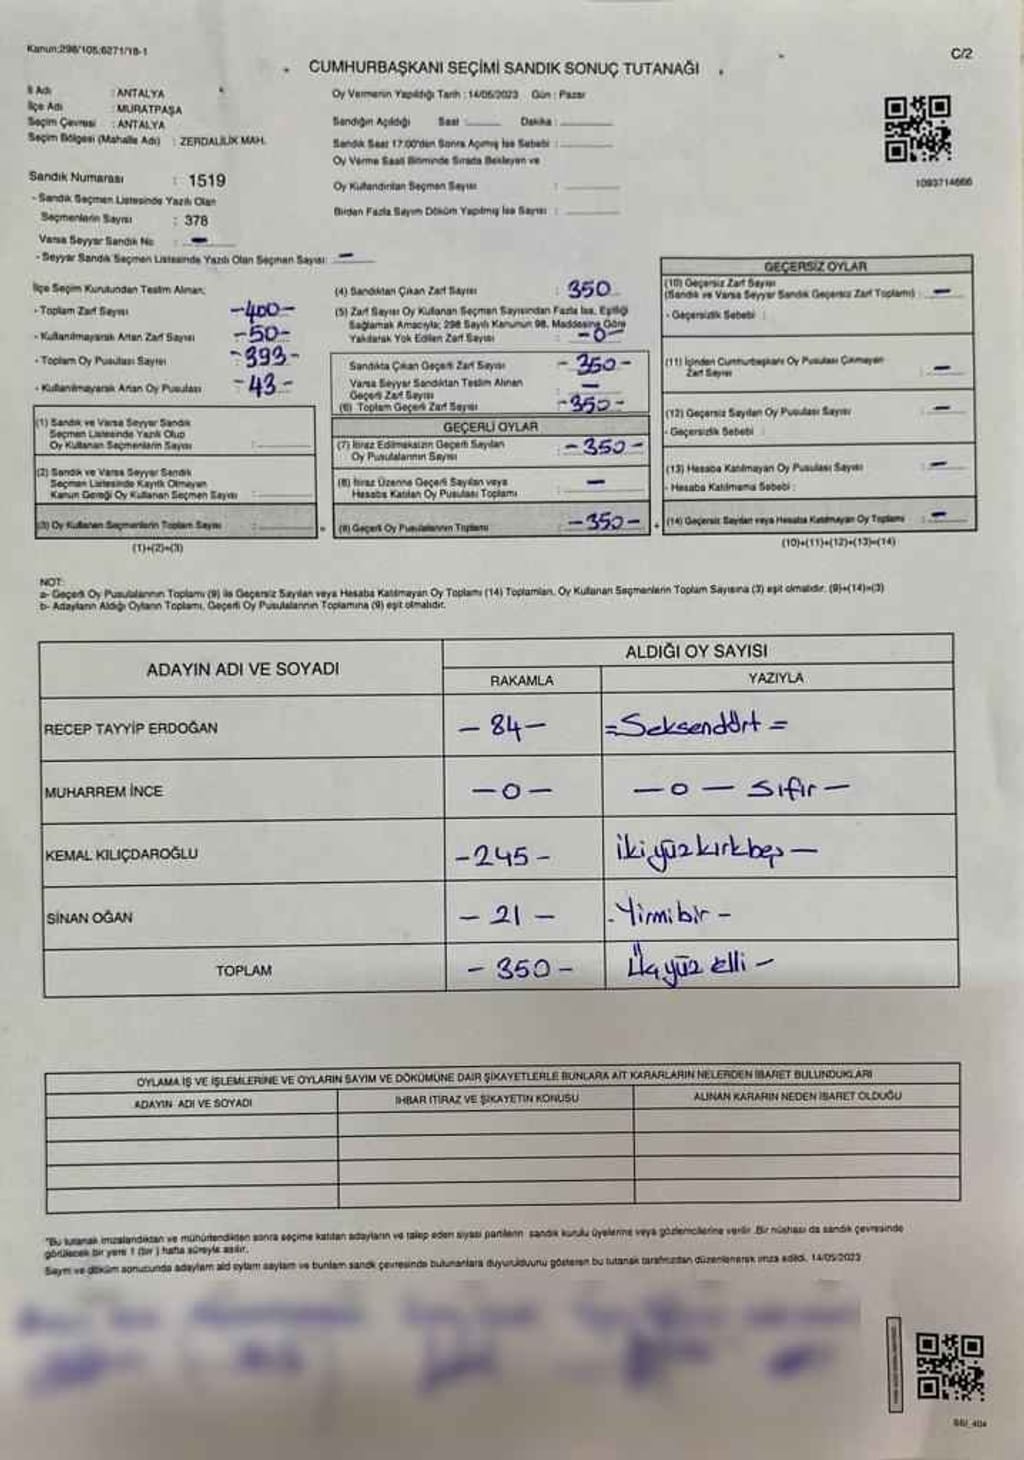 Kanun:298/105;6271/18-1
C/2
CUMHURBAŞKANI SEÇİMİ SANDIK SONUÇ TUTANAĞI
İl Adı : ANTALYA
İlçe Adı : MURATPAŞA
Seçim Çevresi : ANTALYA
Seçim Bölgesi (Mahalle Adı) : ZERDALİLİK MAH.
Sandık Numarası : 1519
- Sandık Seçmen Listesinde Yazılı Olan
Seçmenlerin Sayısı : 378
Varsa Seyyar Sandık No : -
- Seyyar Sandık Seçmen Listesinde Yazılı Olan Seçmen Sayısı: -
Oy Vermenin Yapıldığı Tarih : 14/05/2023 Gün : Pazar
Sandığın Açıldığı Saat : Dakika :
Sandık Saat 17:00'den Sonra Açılmış İse Sebebi :
Oy Verme Saati Bitiminde Sırada Bekleyen ve
Oy Kullandırılan Seçmen Sayısı :
Birden Fazla Sayım Döküm Yapılmış İse Sayısı :
1093714666
İlçe Seçim Kurulundan Teslim Alınan;
- Toplam Zarf Sayısı -400-
- Kullanılmayarak Artan Zarf Sayısı -50-
- Toplam Oy Pusulası Sayısı -393-
- Kullanılmayarak Artan Oy Pusulası -43-
(1) Sandık ve Varsa Seyyar Sandık
Seçmen Listesinde Yazılı Olup
Oy Kullanan Seçmenlerin Sayısı :
(2) Sandık ve Varsa Seyyar Sandık
Seçmen Listesinde Kayıtlı Olmayan
Kanun Gereği Oy Kullanan Seçmen Sayısı :
(3) Oy Kullanan Seçmenlerin Toplam Sayısı :
(1)+(2)=(3)
(4) Sandıktan Çıkan Zarf Sayısı : 350
(5) Zarf Sayısı Oy Kullanan Seçmen Sayısından Fazla İse, Eşitliği
Sağlamak Amacıyla; 298 Sayılı Kanunun 98. Maddesine Göre
Yakılarak Yok Edilen Zarf Sayısı : -0-
Sandıkta Çıkan Geçerli Zarf Sayısı : -350-
Varsa Seyyar Sandıktan Teslim Alınan
Geçerli Zarf Sayısı : -
(6) Toplam Geçerli Zarf Sayısı : -350-
GEÇERLİ OYLAR
(7) İtiraz Edilmeksizin Geçerli Sayılan
Oy Pusulalarının Sayısı : -350-
(8) İtiraz Üzerine Geçerli Sayılan veya
Hesaba Katılan Oy Pusulası Toplamı : -
(9) Geçerli Oy Pusulalarının Toplamı : -350-
GEÇERSİZ OYLAR
(10) Geçersiz Zarf Sayısı
(Sandık ve Varsa Seyyar Sandık Geçersiz Zarf Toplamı) : -
- Geçersizlik Sebebi :
(11) İçinden Cumhurbaşkanı Oy Pusulası Çıkmayan
Zarf Sayısı : -
(12) Geçersiz Sayılan Oy Pusulası Sayısı : -
- Geçersizlik Sebebi :
(13) Hesaba Katılmayan Oy Pusulası Sayısı : -
- Hesaba Katılmama Sebebi :
(14) Geçersiz Sayılan veya Hesaba Katılmayan Oy Toplamı : -
(10)+(11)+(12)+(13)=(14)
NOT:
a- Geçerli Oy Pusulalarının Toplamı (9) ile Geçersiz Sayılan veya Hesaba Katılmayan Oy Toplamı (14) Toplamları, Oy Kullanan Seçmenlerin Toplam Sayısına (3) eşit olmalıdır. (9)+(14)=(3)
b- Adayların Aldığı Oyların Toplamı, Geçerli Oy Pusulalarının Toplamına (9) eşit olmalıdır.
ADAYIN ADI VE SOYADI
ALDIĞI OY SAYISI
RAKAMLA YAZIYLA
RECEP TAYYİP ERDOĞAN - 84 - =Seksendört =
MUHARREM İNCE - 0 - - 0 - Sıfır -
KEMAL KILIÇDAROĞLU -245- ikiyüzkırkbeş -
SİNAN OĞAN - 21 - - Yirmibir -
TOPLAM - 350 - Üçyüz elli -
OYLAMA İŞ VE İŞLEMLERİNE VE OYLARIN SAYIM VE DÖKÜMÜNE DAİR ŞİKAYETLERLE BUNLARA AİT KARARLARIN NELERDEN İBARET BULUNDUKLARI
ADAYIN ADI VE SOYADI İHBAR İTİRAZ VE ŞİKAYETİN KONUSU ALINAN KARARIN NEDEN İBARET OLDUĞU
"Bu tutanak imzalandıktan ve mühürlendikten sonra seçime katılan adayların ve talep eden siyasi partilerin sandık kurulu üyelerine veya gözlemcilerine verilir. Bir nüshası da sandık çevresinde
görülecek bir yere 1 (bir) hafta süreyle asılır.
Sayım ve döküm sonucunda adayların ald oyların sayıları ve bunların sandık çevresinde bulunanlara duyurulduunu gösteren bu tutanak tarafımızdan düzenlenerek imza edildi. 14/05/2023